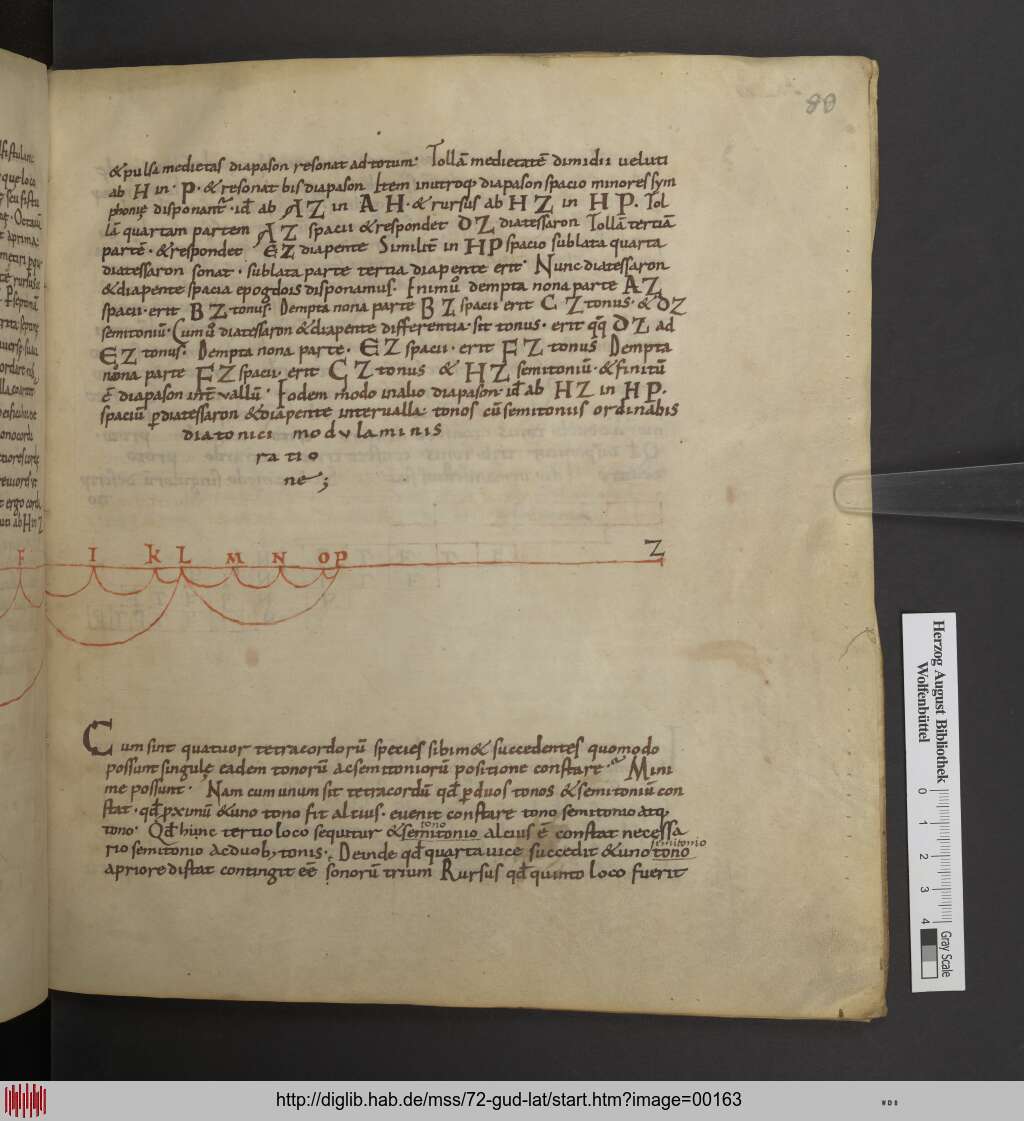 80
& pulsa medietas diapason resonat ad totum. Tollā medietatē dimidii veluti
ab H in · P · & resonat bis diapason Item in utroq; diapason spacio minores sym
phonię disponant᷑ · id ab A Z in A H · & rursus ab H Z in H P. Tol
lā quartam partem A Z spacii & respondet D Z diatessaron Tollā tertiā
partē · & respondet E Z diapente Similit̄ in H P spacio sublata quarta
diatessaron sonat · sublata parte tertia diapente erit· Nunc diatessaron
& diapente spacia epogdois disponamus. Inimū dempta nona parte A Z
spacii · erit B Z tonus · Dempta nona parte B Z spacii erit C Z tonus · & D Z
semitoniū · Cum ū diatessaron & diapente differentia · sit tonus · erit qq̄ D Z ad
E Z tonus · Dempta nona parte · E Z spacii · erit F Z tonus Dempta
nona parte F Z spacii · erit G Z tonus & H Z semitoniū · & finitū
ē diapason int̄ vallū · Eodem modo in alio diapason · id ab H Z in H P.
spaciū p diatessaron & diapente intervalla · tonos cū semitoniis ordinabis
diatonici modulaminis
ratio
ne ;
F I K L M N O P Z
Cum sint quatuor tetracordorū species sibim& succedentes quomodo
possunt singulę eadem tonorū ac semitoniorū positione constare · Mini
me possunt · Nam cum unum sit tetracordū qd̄ p duos tonos & semitoniū con
stat · qd̄ pximū & uno tono fit altius · evenit constare tono semitonio atq;
tono · Qd̄ hunc tertio loco sequitur & semitonio altius ē constat necessa
tono
rio semitonio ac duob; tonis · Deinde qd̄ quarta vice succedit & uno tono
semitonio
a priore distat contingit eē sonorū trium Rursus qd̄ quinto loco fuerit
Herzog August Bibliothek
Wolfenbüttel
0 1 2 3 4
Gray Scale
http://diglib.hab.de/mss/72-gud-lat/start.htm?image=00163
WDB